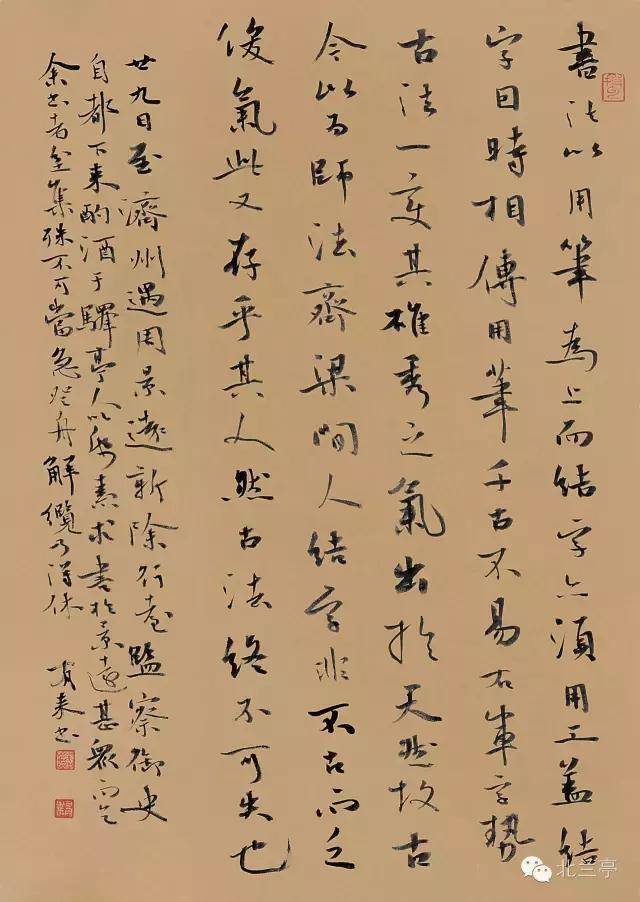 書法以用筆為上而結字亦須用工蓋結
字因時相傳用筆千古不易右軍字勢
古法一变其雄秀之氣出於天然故古
今以为師法齊梁間人結字非不古而乏
俊氣此又存乎其人然古法終不可失也
廿九日至濟州遇周景遠新除行臺監察御史
自都下来酌酒于驛亭人以紙素求書於景遠甚眾而乞
余书者坌集殊不可當急登舟解纜乃得休 有来书
北兰亭